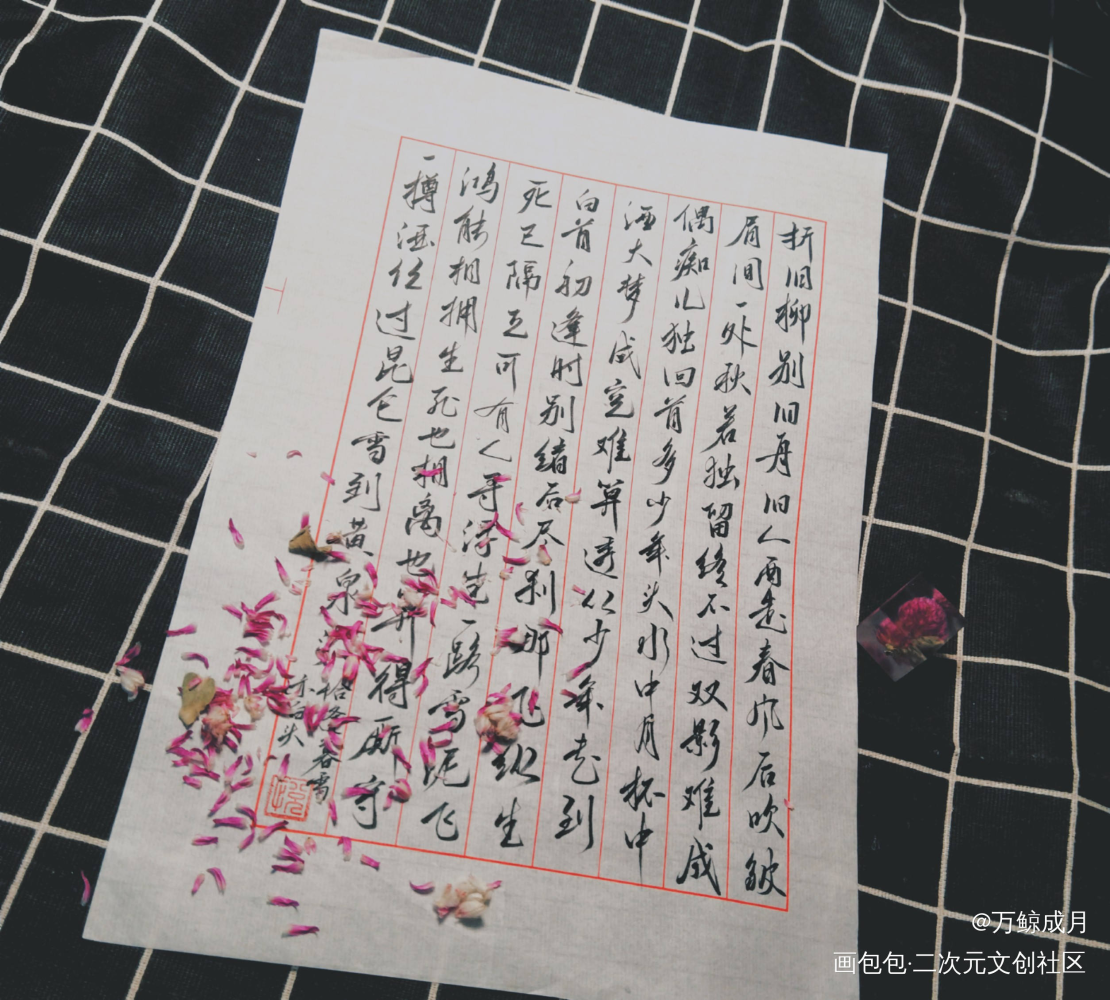 折旧柳别旧舟旧人西赴春风后吹皱
眉间一处秋若独留终不过双影难成
偶痴儿独回首多少年头水中月杯中
酒大梦成空难算透从少年走到
白首初逢时别绪后尽刹那飞纵生
死已隔亘可有人寻浮生一路雪泥飞
鸿能相拥生死也相离也算得厮守
一樽酒经过昆仑雪到黄泉
春雪
未白头
@万鲸成月
画包包·二次元文创社区